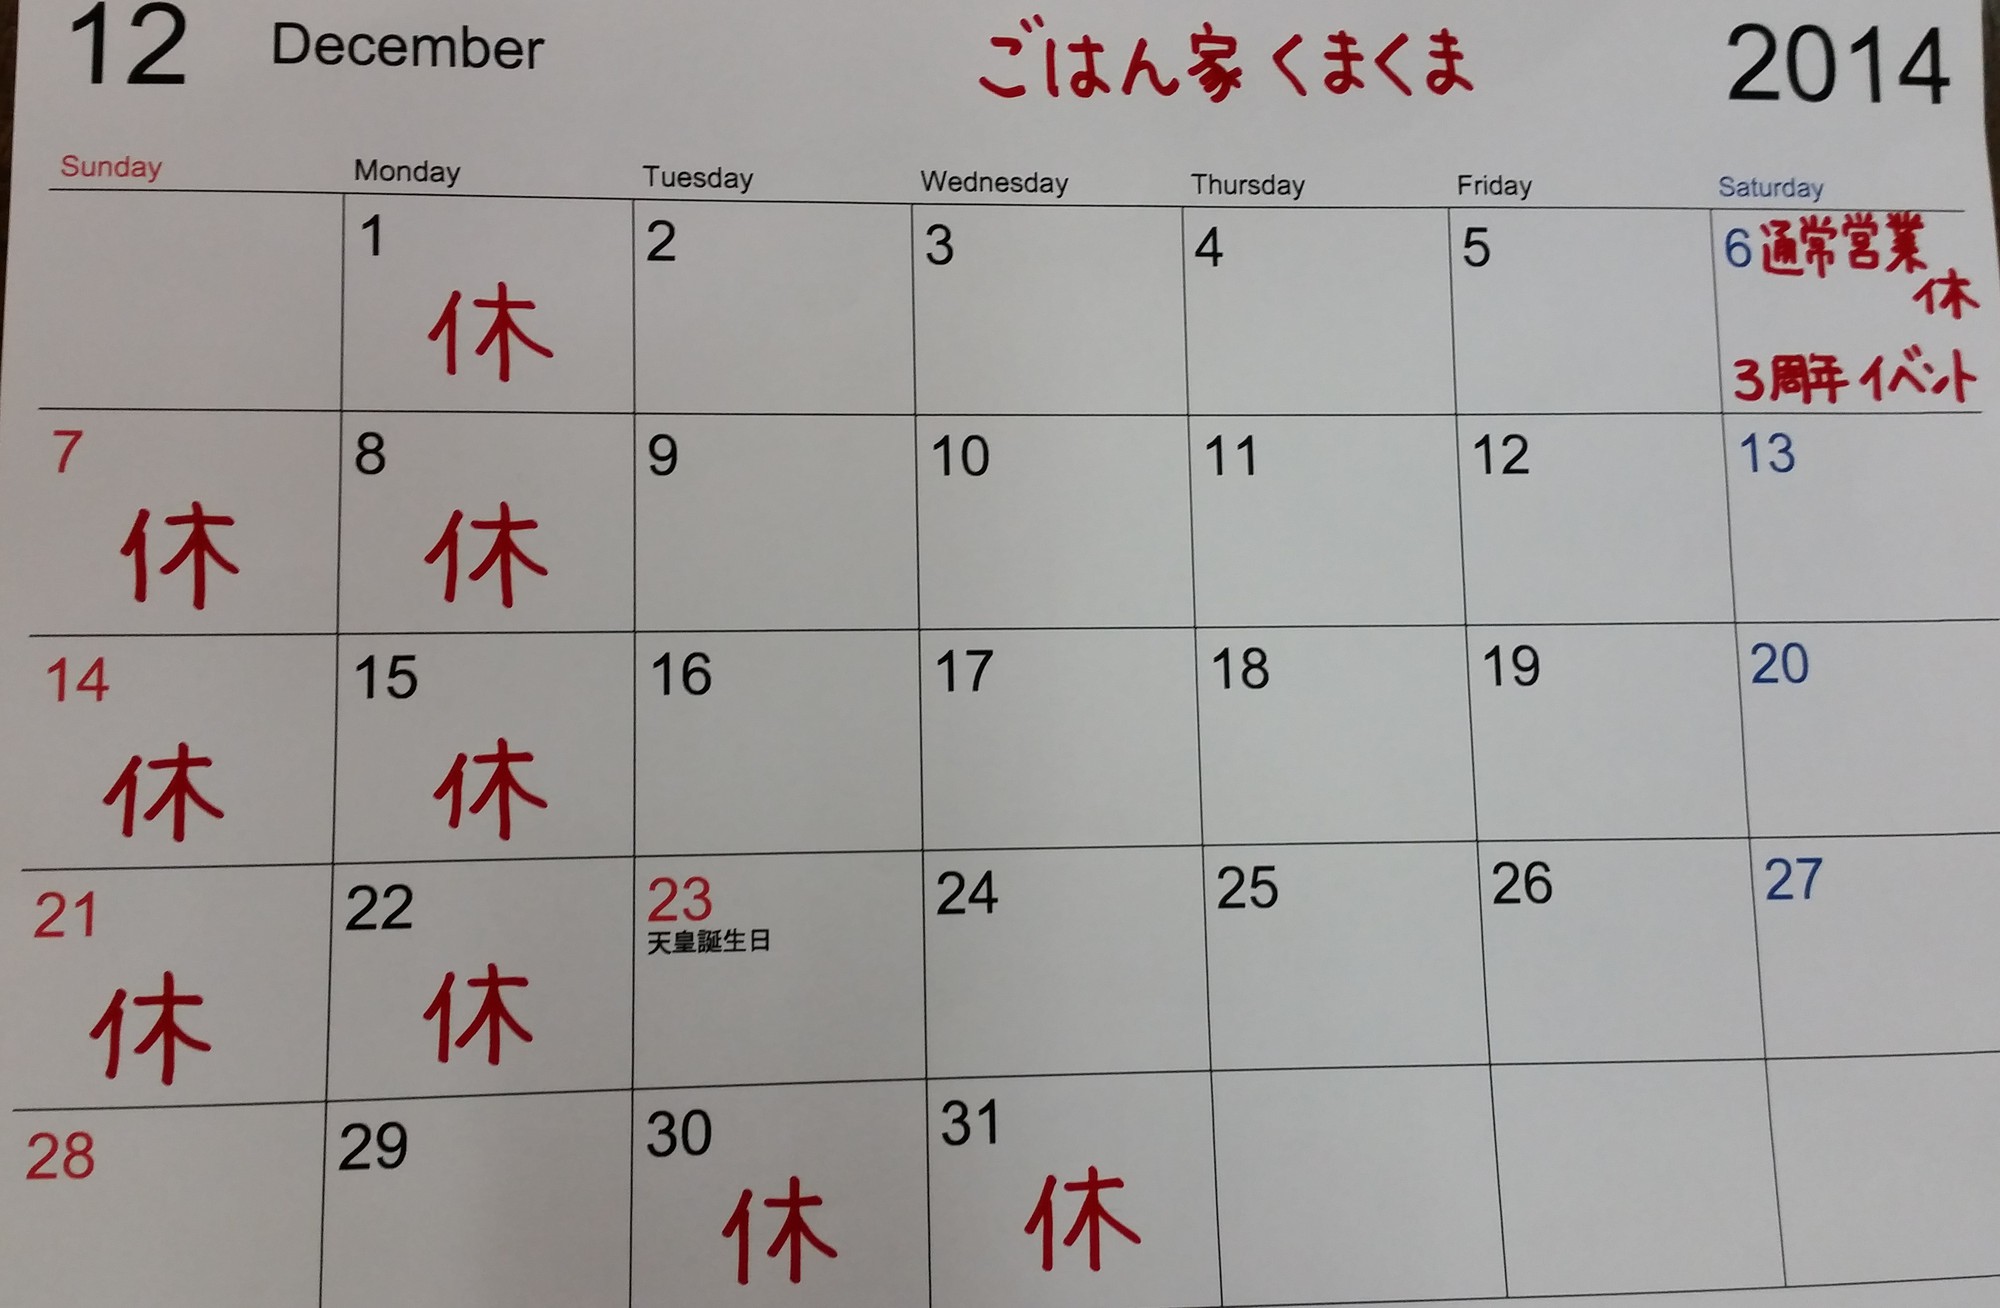 12 December ごはん家 くまくま 2014
Sunday Monday Tuesday Wednesday Thursday Friday Saturday
1 2 3 4 5 6 通常営業
休 休
3周年 イベント
7 8 9 10 11 12 13
休 休
14 15 16 17 18 19 20
休 休
21 22 23 24 25 26 27
天皇誕生日
休 休
28 29 30 31
休 休